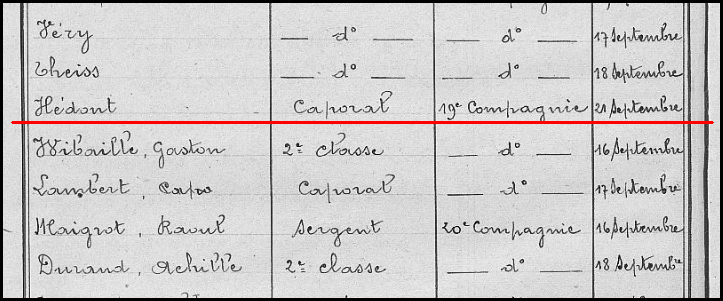 Véry — d° — — d° — 17 Septembre
Theiss — d° — — d° — 18 Septembre
Hédont Caporal 19e Compagnie 21 Septembre
Wibaille, Gaston 2e classe — d° — 16 Septembre
Lambert, Capo Caporal — d° — 17 Septembre
Maigrot, Raoul Sergent 20e Compagnie 16 Septembre
Durand, Achille 2e classe — d° — 18 Septembre